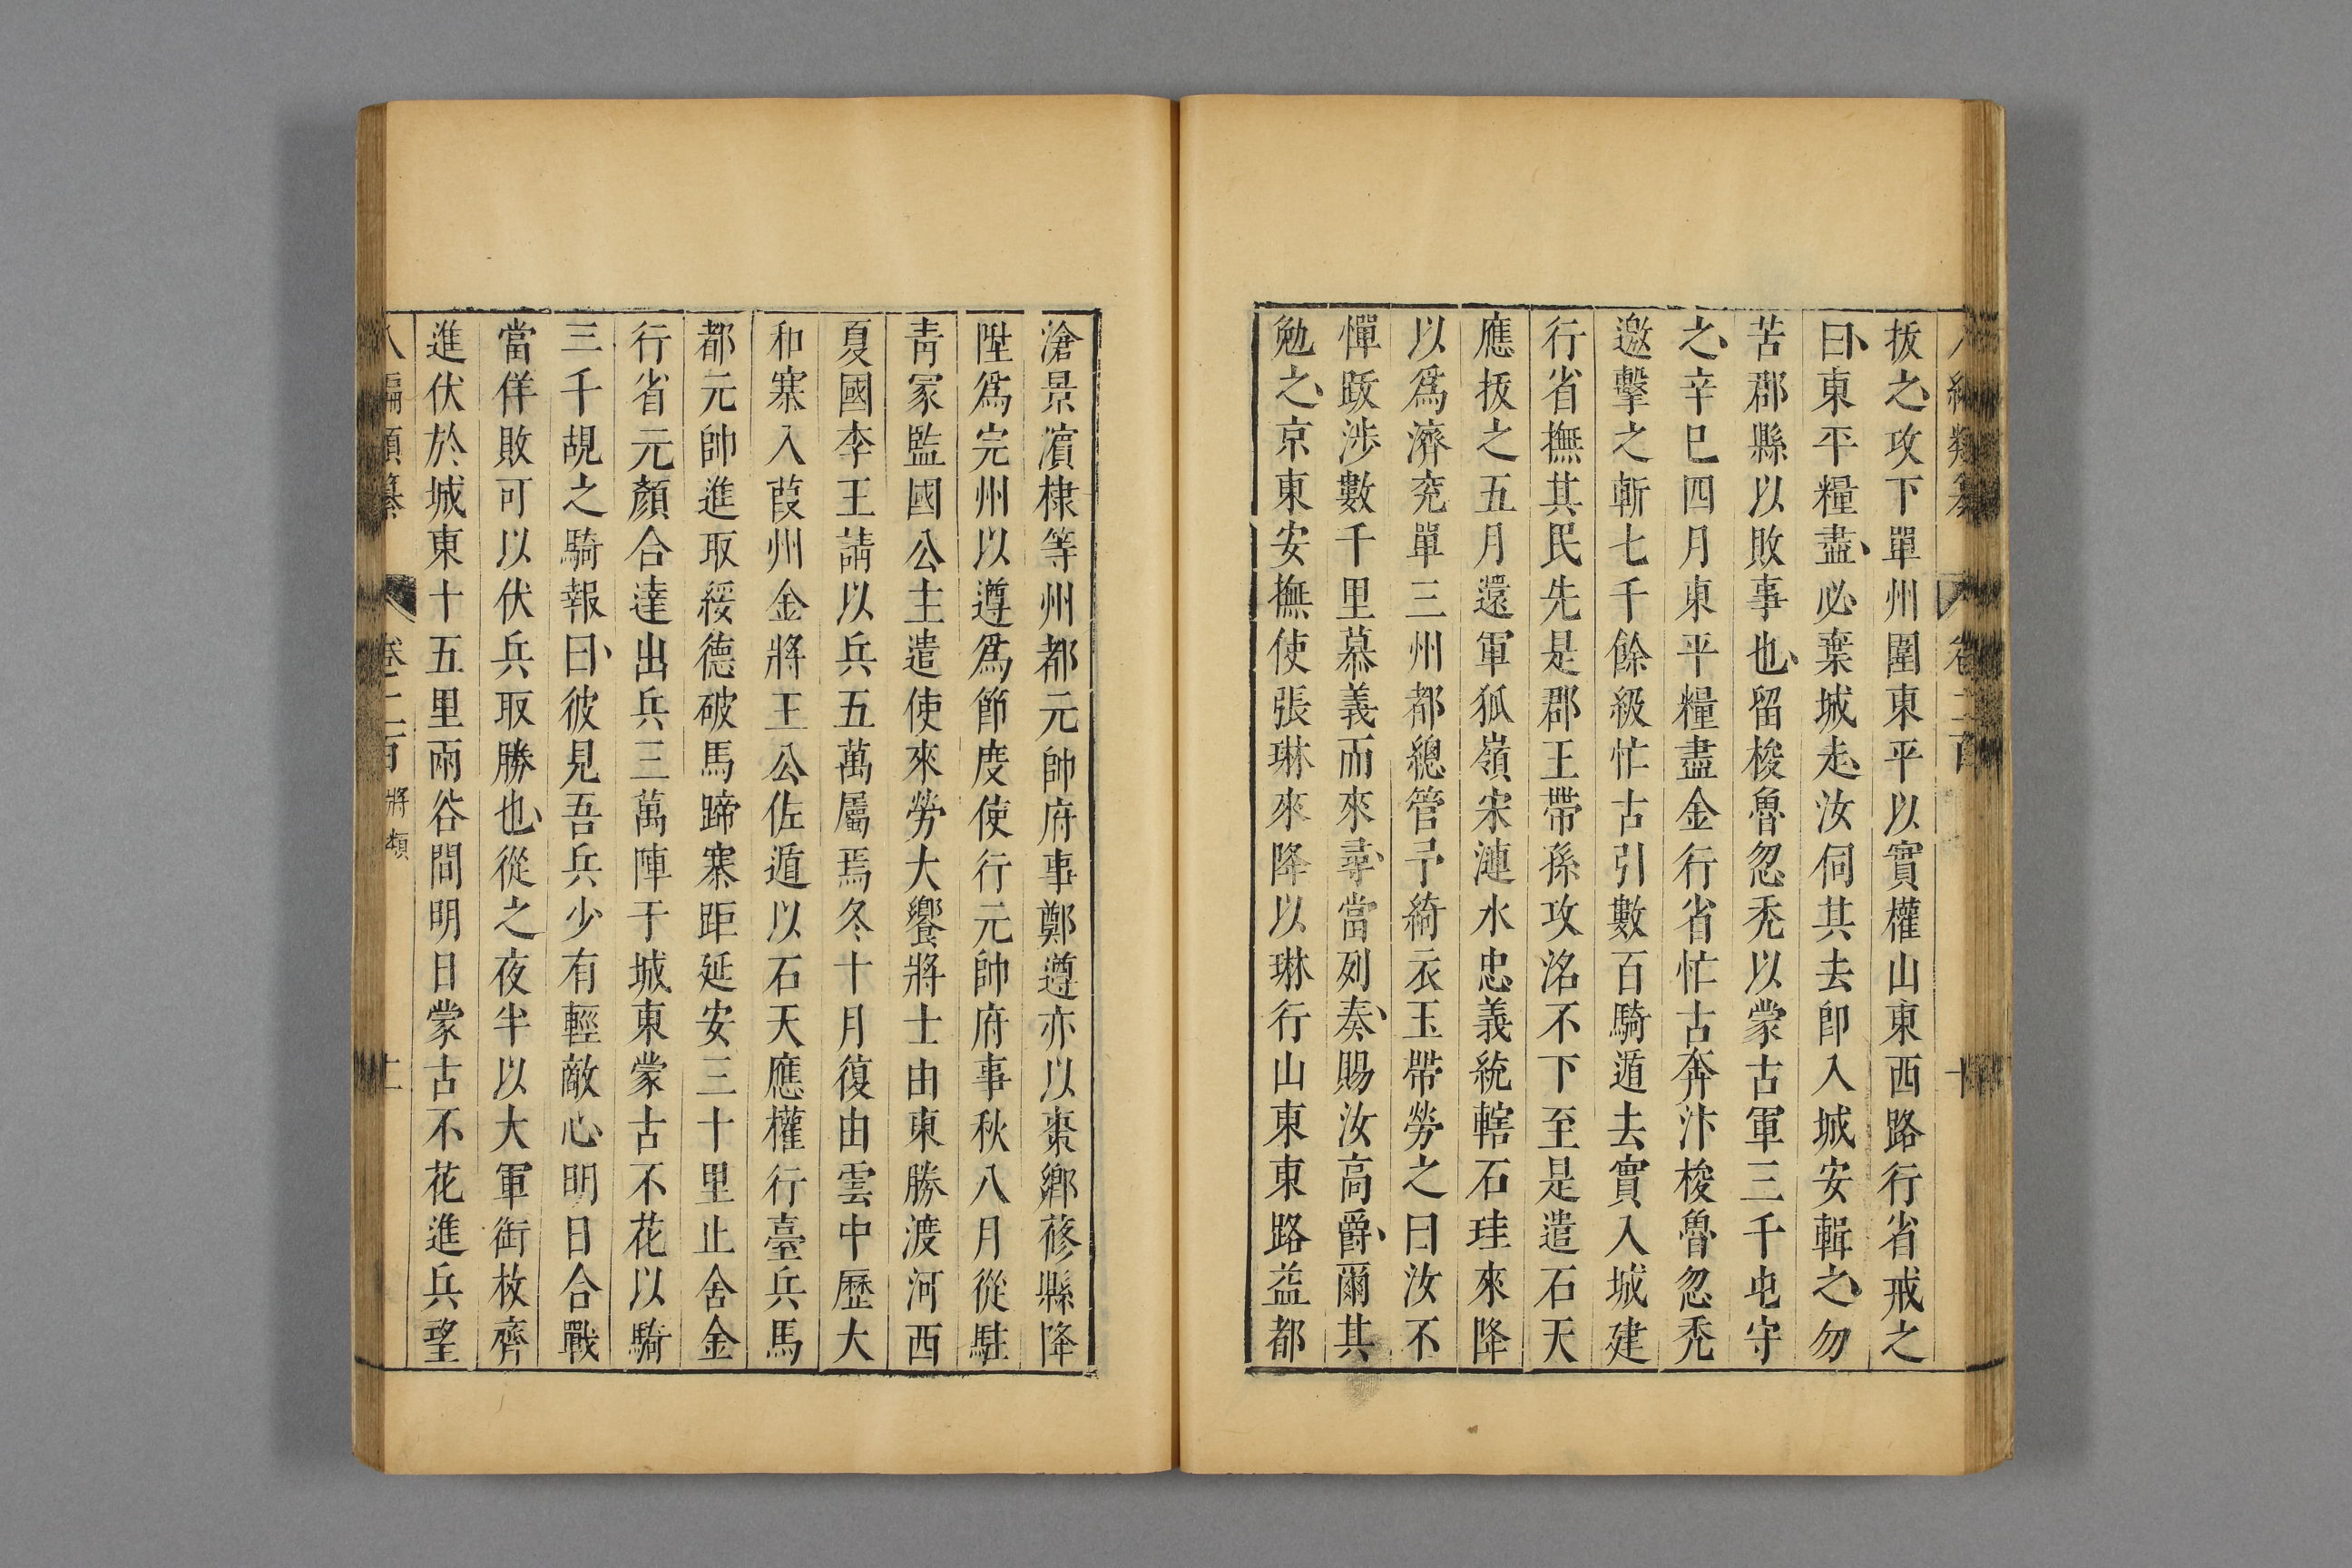 拔之攻下單州圍東平以實權山東西路行省戒之
曰東平糧盡必棄城走汝伺其去卽入城安輯之勿
苦郡縣以敗事也留梭魯忽禿以蒙古軍三千屯守
之辛巳四月東平糧盡金行省忙古奔汴梭魯忽禿
邀擊之斬七千餘級忙古引數百騎遁去實入城建
行省撫其民先是郡王帶孫攻洺不下至是遣石天
應拔之五月還軍狐嶺宋漣水忠義統轄石珪來降
以爲濟兖單三州都總管予綺衣玉帶勞之曰汝不
憚跋涉數千里慕義而來尋當列奏賜汝高爵爾其
勉之京東安撫使張琳來降以琳行山東東路益都
滄景濱棣等州都元帥府事鄭遵亦以棗鄉蓨縣降
陞爲完州以遵爲節度使行元帥府事秋八月從駐
靑冢監國公主遣使來勞大饗將士由東勝渡河西
夏國李王請以兵五萬屬焉冬十月復由雲中歷大
和寨入葭州金將王公佐遁以石天應權行臺兵馬
都元帥進取綏德破馬蹄寨距延安三十里止舍金
行省元顏合達出兵三萬陣于城東蒙古不花以騎
三千覘之騎報曰彼見吾兵少有輕敵心明日合戰
當佯敗可以伏兵取勝也從之夜半以大軍銜枚齊
進伏於城東十五里兩谷間明日蒙古不花進兵望
八編類纂 卷二百 將類 十一